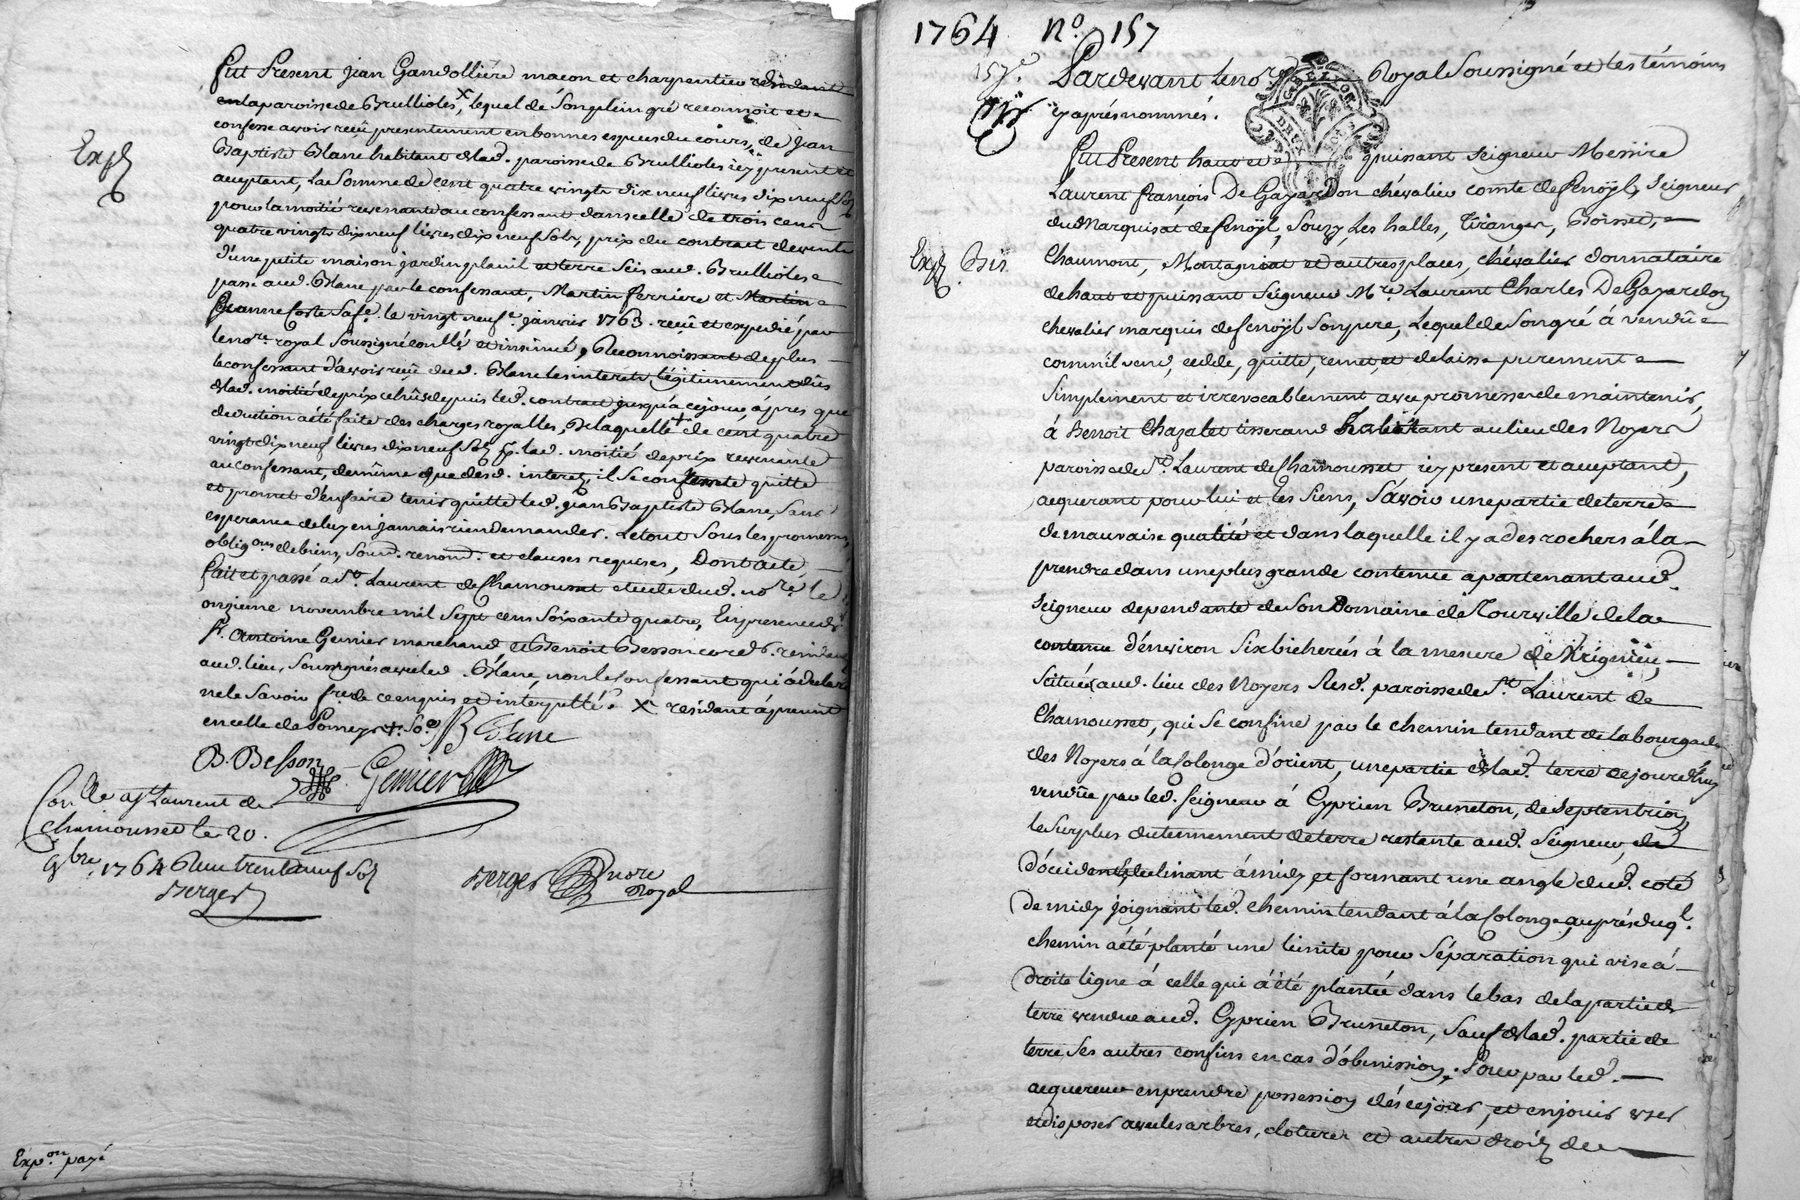 fut Present Jean Gandolliere macon et charpentier residant
en la paroisse de Brullioles, x lequel de son plein gré reconnoit et
confesse avoir reçû presentement en bonnes especes du cours, de Jean
Expé
Baptiste Blanc habitant de lad. paroisse de Brullioles icy present et
acceptant, La Somme de cent quatre vingts dix neuf livres dix neuf Sols
pour la moitié revenante au confessant dans celle de trois cens
quatre vingts dix neuf livres dix neuf Sols, prix du contract de vente
d'une petite maison jardin et terre Scis aud. Brullioles
passé aud. Blanc par le confessant, Martin ferriere et
Jeanne Coste Sa fe. le vingt neufe. janvier 1763. reçû et expedié par
le nore. royal Soussigné conllé et insinué, Reconnoissant de plus
le confessant d'avoir reçû dud. Blanc les interets légitimement dûs
de lad. moitié de prix echûs depuis led. contract jusqu'a ce jour, apres que
deduction a été faite des charges royalles, De laquelle + de cent quatre
vingts dix neuf livres dix neuf Sols pr. lad. moitié de prix revenante
au confessant, de même que desd. interets, il Se contente quitte
et promet d'en faire tenir quitte led. jean Baptiste Blanc, Sans
esperance de luy en jamais rien demander. Le tout Sous les promesses,
obligons. de biens, Soud. renond. et clauses requises, Dont acte
fait et passé a St. Laurent de Chamousset etude dud. nore. le
onzieme novembre mil Sept cens Soixante quatre, En presence de
Sr. Antoine Gemier marchand et Benoit Besson cord. residants
aud. lieu, Soussignés avec led. Blanc, non le confessant qui a declaré
ne le Savoir fre. de ce enquis et interpellé. x residant a present
en celle de Pomeys +. Soe. JB Blanc
B. Besson Gemier
Conllé a St Laurent de
Chamousset le 20.
9bre. 1764 Reçu trente neuf Sols
Berger
Berger nore Royal
Expon. payé
1764 No. 157
157e
Pardevant le nore. Royal Soussigné et les témoins
cy aprés nommés.
GEN. DE LYON
DEUX SOLS
fut Present haut et puissant seigneur Messire
Laurent françois De Gayardon chévalier comte de fenoÿl, Seigneur
du Marquisat de fenoÿl, Souzy, Les halles, Tiranges, Boisset,
Expé. Bis.
Chaumont, Montagniat et autres places, chévalier donnataire
de haut et puissant Seigneur Mre. Laurent Charles De Gayardon
chevalier marquis de fenoÿl Son pere, Lequel de Son gré à vendû
comm'il vend, cedde, quitte, remet, et delaisse purement
Simplement et irrevocablement avec promesse de maintenir,
à Benoit Chazalet tisserand habitant au lieu des Noyers
paroisse de St. Laurent de Chamousset icy present et acceptant,
acquerant pour lui et les Siens, Sçavoir une partie de terre
de mauvaise qualité et dans laquelle il y a des rochers à la
prendre dans une plus grande contenue apartenant aud.
Seigneur dependante de Son Domaine de Tourville de la
contenue d'environ Six bicherées à la mesure de Arigneiu,
Scituée aud. lieu des Noyers Susd. paroisse de St. Laurent de
Chamousset, qui Se confine par le chemin tendant de la bourgade
des Noyers à la Solonge d'orient, une partie de lad. terre cejourd'huy
vendûe par led. Seigneur à Cyprien Bruneton, de Septentrion
le Surplus du tennement de terre restante aud. Seigneur,
d'occident declinant à midy et formant une angle dud. coté
de midy joignant led. chemin tendant à la Solonge, auprés duql.
chemin a été planté une limite pour Séparation qui vise à
droite ligne à celle qui a été plantée dans le bas de la partie de
terre vendue aud. Cyprien Bruneton, Sauf de lad. partie de
terre Ses autres confins en cas d'obmission, Pour par led.
acquereur en prendre possession dés ce jour, et en jouir user
et disposer avec les arbres, cloture et autres droits de